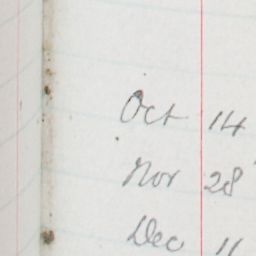 Oct 14
Nov 28
Dec 11